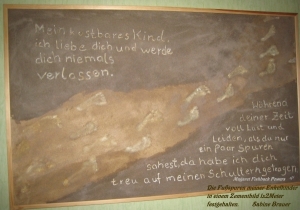 Mein kostbares Kind,
ich liebe dich und werde
dich niemals
verlassen.
Während
deiner Zeit
voll Last und
Leiden, als du nur
ein Paar Spuren
sahest, da habe ich dich
treu auf meinen Schultern getragen
Margaret Fishback Powers
Die Fußspuren meiner Enkelkinder
in einem Zementbild 1x2Meter
festgehalten. Sabine Brauer